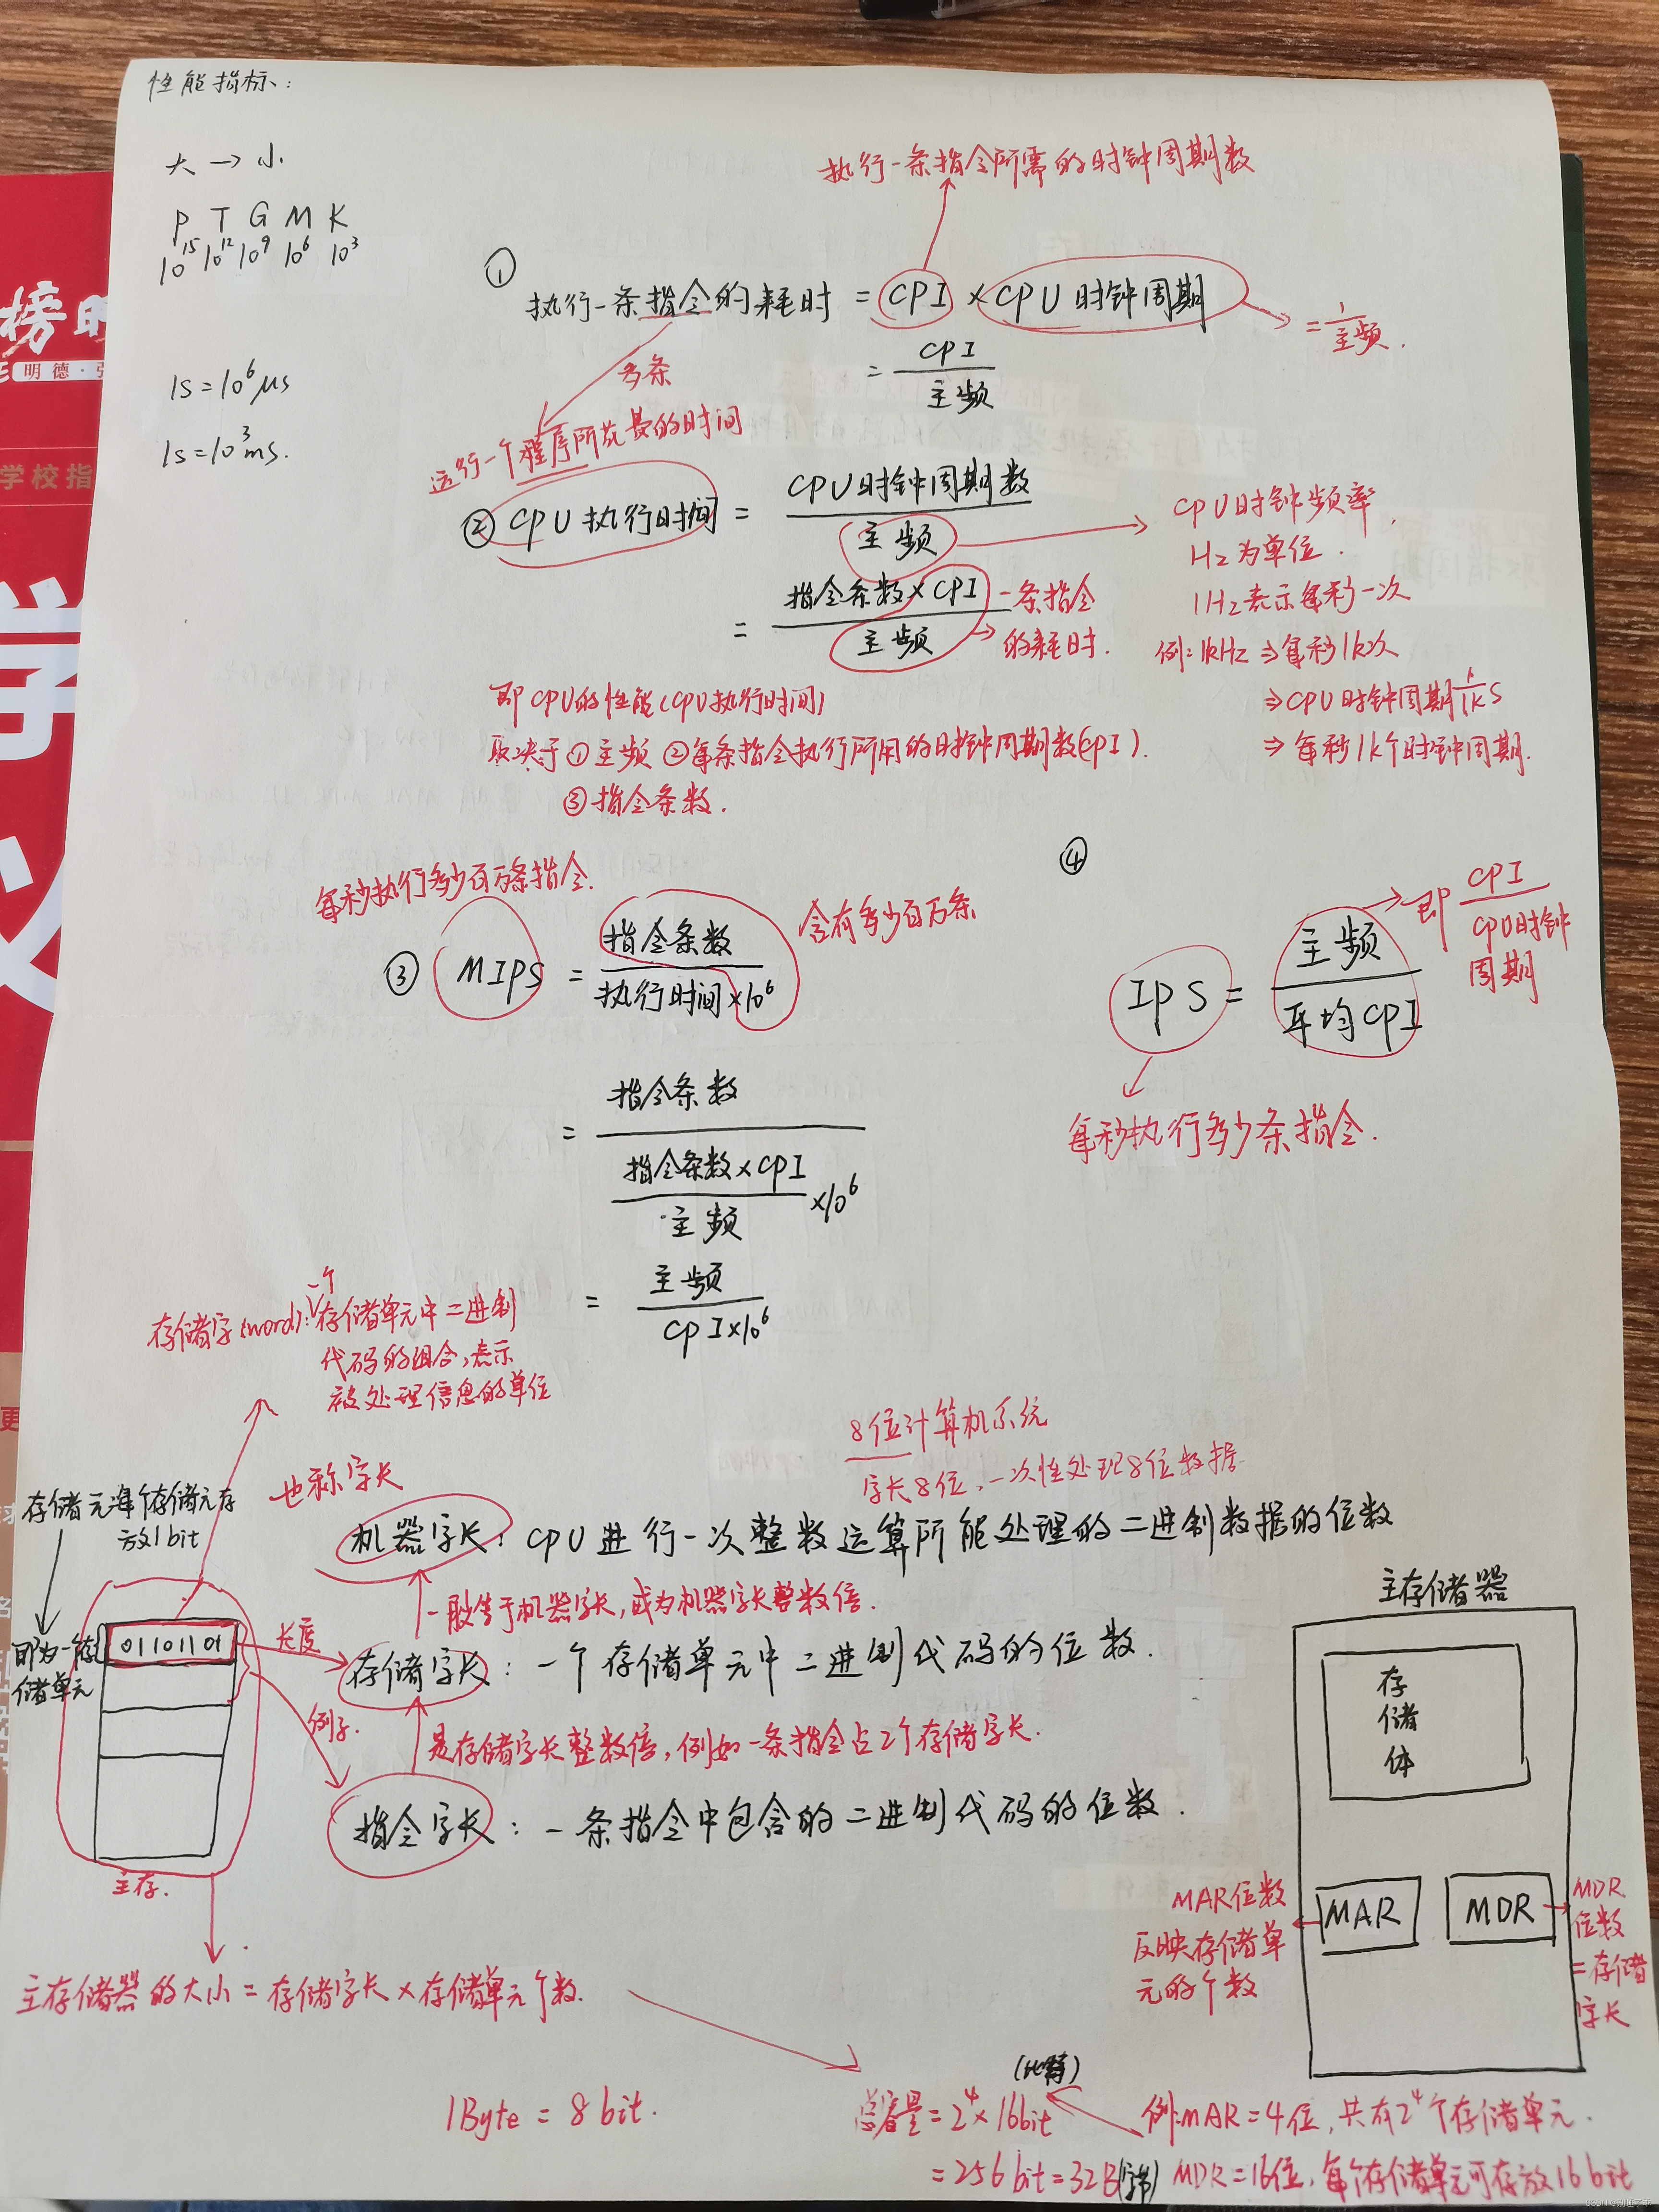 性能指标:
大 → 小
P T G M K
10^15 10^12 10^9 10^6 10^3
1s=10^6μs
1s=10^3ms.
执行一条指令所需的时钟周期数
① 执行一条指令的耗时 = CPI × CPU时钟周期
= 1/主频.
= CPI/主频
多条
运行一个程序所花费的时间
② CPU执行时间 = CPU时钟周期数/主频
= 指令条数×CPI/主频
一条指令
的耗时.
CPU时钟频率,
Hz为单位.
1Hz表示每秒一次
例:1kHz⇒每秒1k次
⇒CPU时钟周期1/1k s
⇒每秒1k个时钟周期.
即CPU的性能(CPU执行时间)
取决于①主频 ②每条指令执行所用的时钟周期数(CPI).
③指令条数.
每秒执行多少百万条指令.
③ MIPS = 指令条数/执行时间×10^6
含有多少百万条
= 指令条数/(指令条数×CPI/主频 ×10^6)
= 主频/CPI×10^6
④
IPS = 主频/平均CPI
即 CPI/CPU时钟周期
每秒执行多少条指令.
存储字(word):一个存储单元中二进制
代码的组合,表示
被处理信息的单位
8位计算机系统
字长8位,一次性处理8位数据
也称字长
机器字长: CPU进行一次整数运算所能处理的二进制数据的位数
一般等于机器字长,或为机器字长整数倍.
存储字长: 一个存储单元中二进制代码的位数.
是存储字长整数倍,例如一条指令占2个存储字长.
指令字长: 一条指令中包含的二进制代码的位数.
存储元每个存储元存
放1bit
即为一存
储单元
01101101
长度
例子.
主存.
主存储器的大小=存储字长×存储单元个数.
主存储器
存储体
MAR
MDR
MAR位数
反映存储单
元的个数
MDR
位数
=存储
字长
1Byte = 8bit.
(比特)
总容量=2^4×16bit
=256bit=32B(字节)
例:MAR=4位,共有2^4个存储单元.
MDR=16位,每个存储单元可存放16bit
明德·
学校指
榜
学
义
更